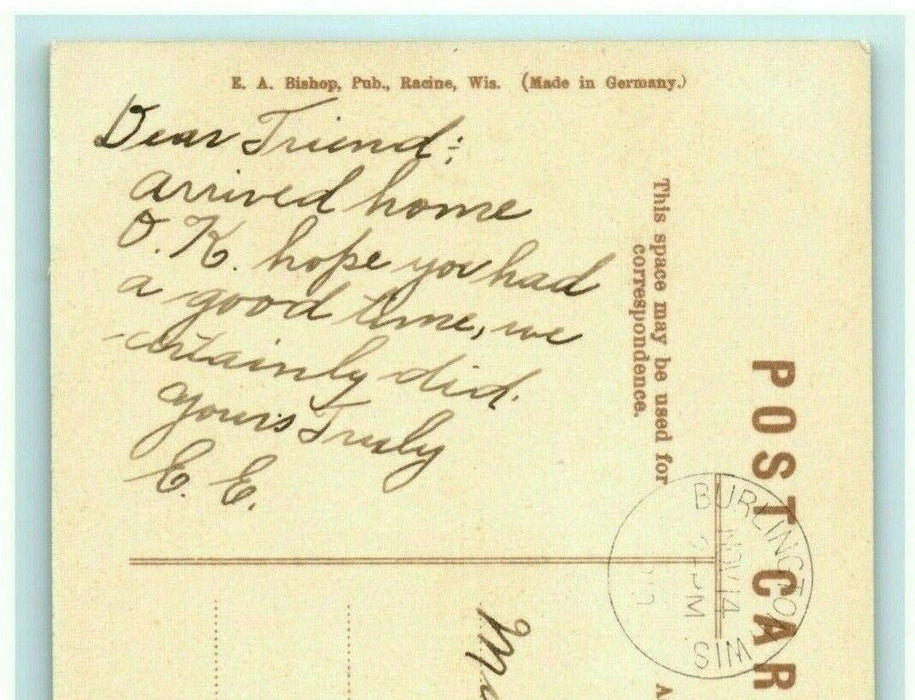 E. A. Bishop, Pub., Racine, Wis. (Made in Germany.)
Dear Friend:
arrived home
O.K. hope you had
a good time, we
certainly did.
Yours Truly
E. E.
This space may be used for
correspondence.
POST CAR
BURLINGTON
NOV 14
M
WIS.
A